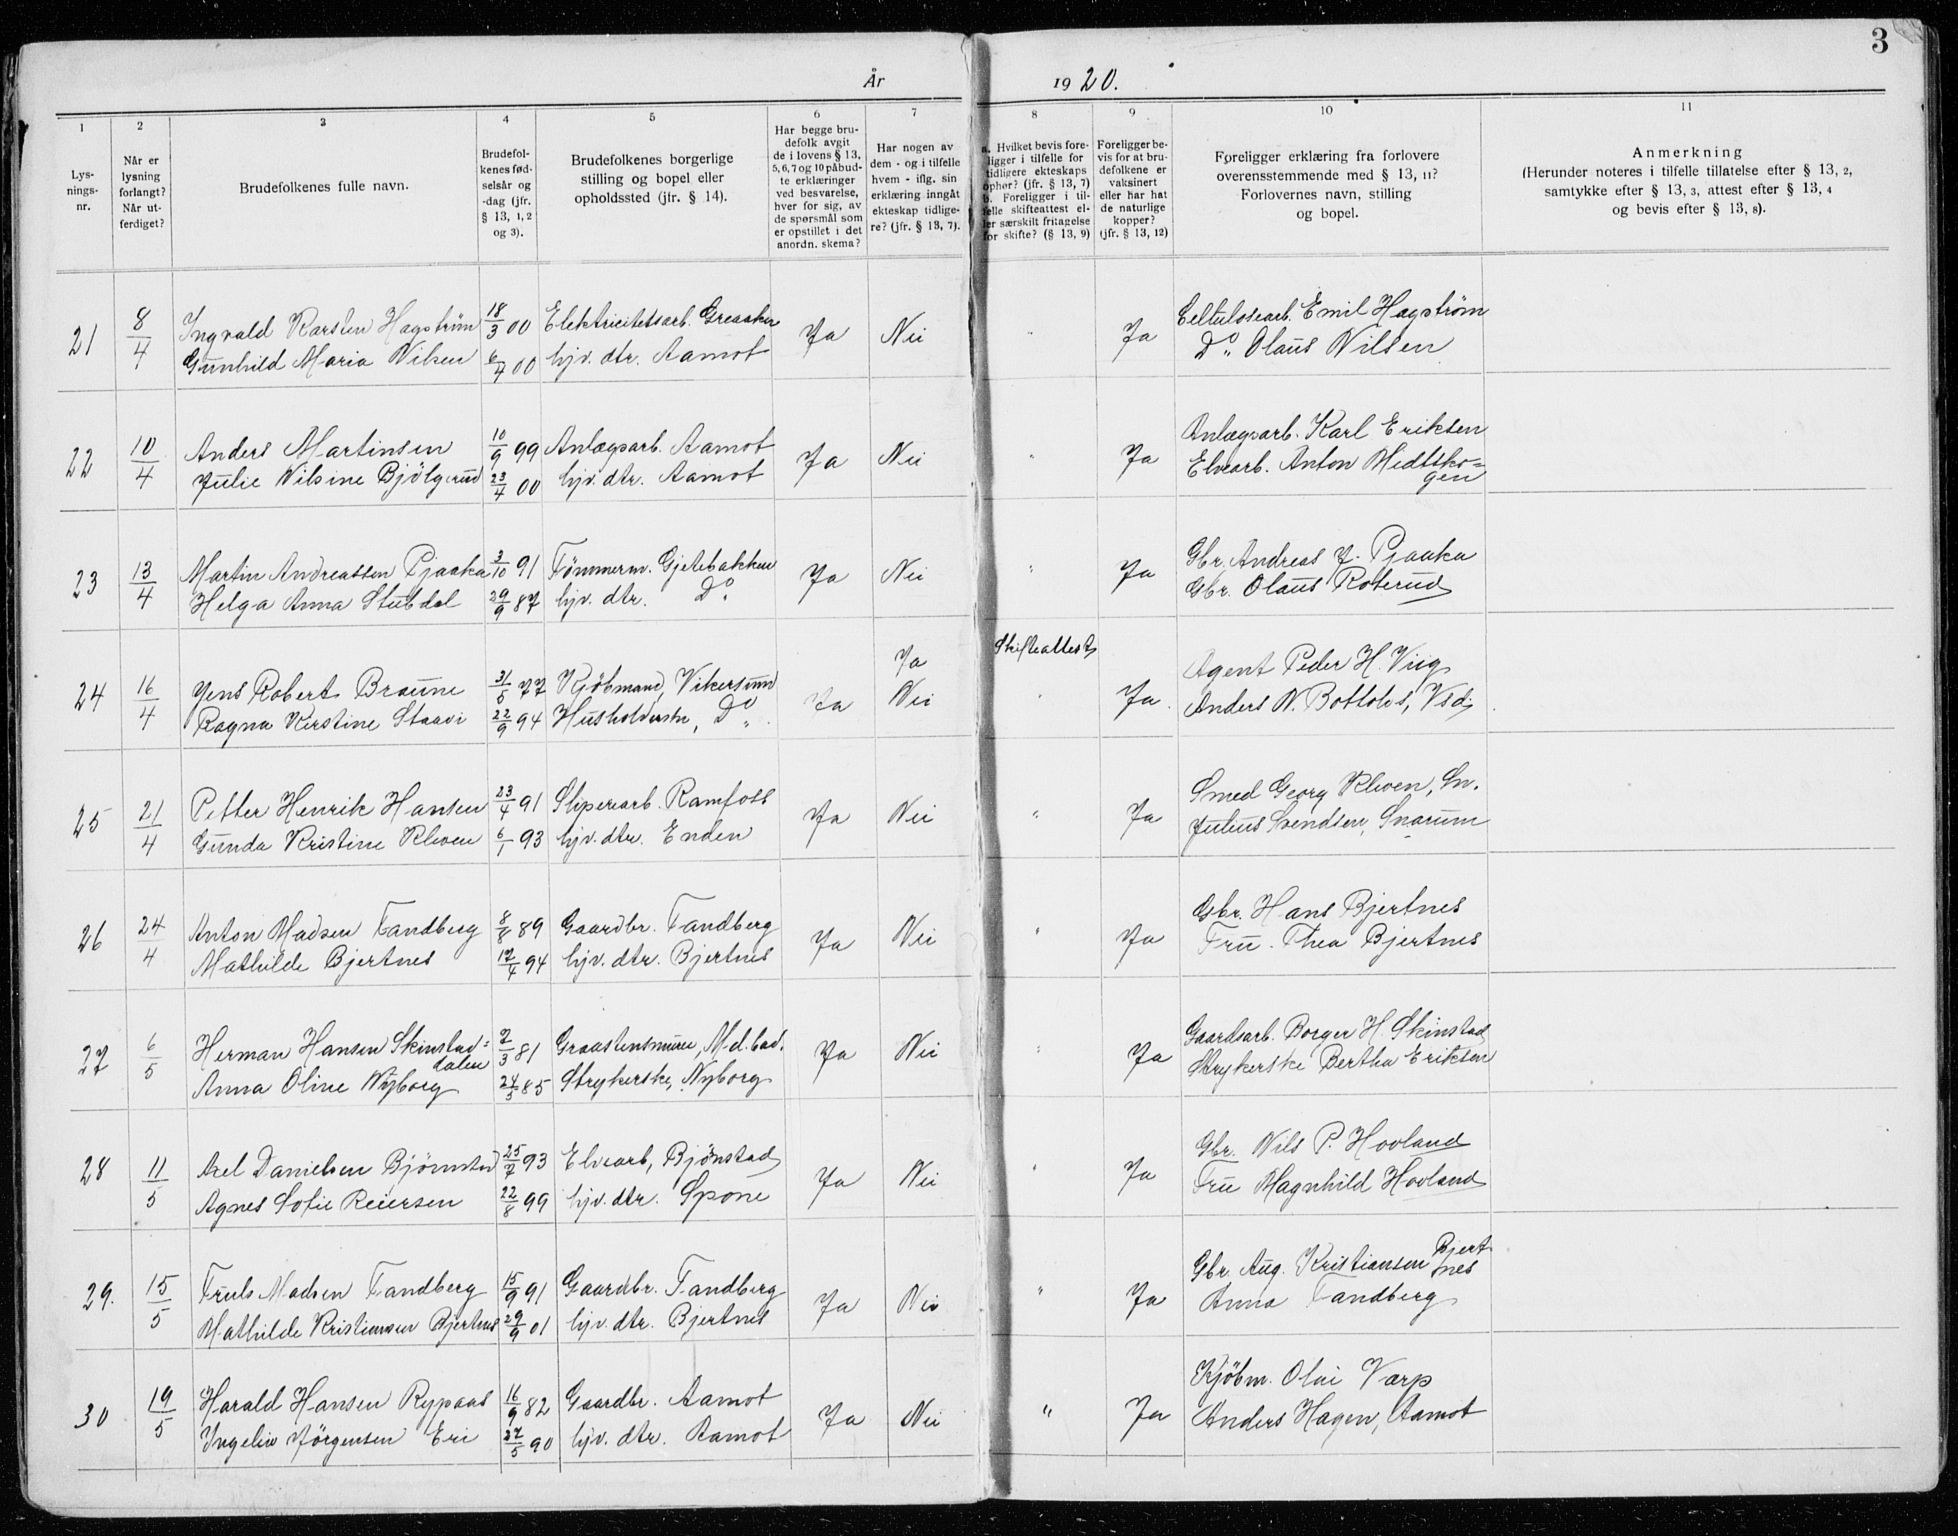 3
År 1920.
1 2 3 4 5 6 7 8 9 10 11
Lys-
nings-
nr.
Når er
lysning
forlangt?
Når ut-
ferdiget?
Brudefolkenes fulle navn.
Brudefol-
kenes fød-
selsår og
-dag (jfr.
§ 13, 1, 2
og 3).
Brudefolkenes borgerlige
stilling og bopel eller
opholdssted (jfr. § 14).
Har begge bru-
defolk avgit
de i lovens § 13,
5, 6, 7 og 10 påbud-
te erklæringer
ved besvarelse,
hver for sig, av
de spørsmål som
er opstillet i det
anordn. skema?
Har nogen av
dem - og i tilfelle
hvem - iflg. sin
erklæring inngåt
ekteskap tidlige-
re? (jfr. § 13, 7).
a. Hvilket bevis fore-
ligger i tilfelle for
tidligere ekteskaps
ophør? (jfr. § 13, 7)
b. Foreligger i til-
felle skifteattest el-
ler særskilt fritagelse
for skifte? (§ 13, 9)
Foreligger be-
vis for at bru-
defolkene er
vaksinert
eller har hat
de naturlige
kopper?
(jfr. § 13, 12)
Foreligger erklæring fra forlovere
overensstemmende med § 13, 11?
Forlovernes navn, stilling
og bopel.
Anmerkning
(Herunder noteres i tilfelle tillatelse efter § 13, 2,
samtykke efter § 13, 3, attest efter § 13, 4
og bevis efter § 13, 8).
21 8/4 Ingvald Karsten Hagström 18/3 00 Elektricitetsarb. Greaaker Ja Nei " Ja Cellulosearb. Emil Hagström
Gunhild Maria Nilsen 6/4 00 hjv. dtr. Aamot Do „ Olaus Nilsen
22 10/4 Anders Martinsen 10/9 99 Anlægsarb. Aamot Ja Nei " Ja Anlægsarb. Karl Eriksen
Julie Nilsine Bjölgerud 23/4 00 hjv. dtr. Aamot Elvearb. Anton Midtsko=
gen
23 13/4 Martin Andreassen Pjaaka 3/10 91 Tømmerm. Gjetebakken Ja Nei " Ja Gbr. Andreas J. Pjaaka
Helga Anna Stubdal 29/9 87 hjv. dtr. Do. Gbr. Olaus Roterud
24 16/4 Jens Robert Braune 31/5 77 Kjöbmand, Vikersund Ja Ja Skifteattest Ja. Agent Peder H. Viig
Ragna Kerstine Staavi 22/9 94 Husholderske, Do „ Nei " Anders N. Bottolvs, Vsd.
25 21/4 Petter Henrik Hansen 23/4 91 Sliperearb. Ramfoss Ja Nei " Ja Smed Georg Kleven, Sn.
Gunda Kristine Kleven 6/1 93 hjv. dtr. Enden Julius Svendsen, Snarum
26 24/4 Anton Madsen Tandberg 8/8 89 Gaardbr. Tandberg Ja Nei " Ja Gbr. Hans Bjertnes
Mathilde Bjertnes 17/4 94 hjv. dtr. Bjertnes Fru. Thea Bjertnes
27 6/5 Herman Hansen Skinstad=
dalen 7/3 81 Graastensmurer, Md. bad. Ja Nei " Ja Gaardsarb. Borger H. Skinstad
Anna Oline Nyborg 24/5 85 Strykerske, Nyborg Strykerske Bertha Eriksen
28 11/5 Axel Danielsen Bjørnstad 25/7 93 Elvearb, Bjönstad Ja Nei " Ja Gbr. Nils P. Hovland
Agnes Sofie Reiersen 22/8 99 hjv. dtr. Spone Fru Magnhild Hovland
29. 15/5 Truls Madsen Tandberg 15/9 91 Gaardbr. Tandberg Ja Nei " Ja Gbr. Aug. Kristiansen Bjert
nes
Mathilde Kristiansen Bjertnes 29/9 01 hjv. dtr. Bjertnes Anna Tandberg
30 19/5 Harald Hansen Rypaas 16/9 82 Gaardbr. Aamot Ja Nei " Ja Kjöbm. Olai Varp
Ingeliv Jörgensen Eri 27/5 90 hjv. dtr. Aamot Anders Hagen, Aamot